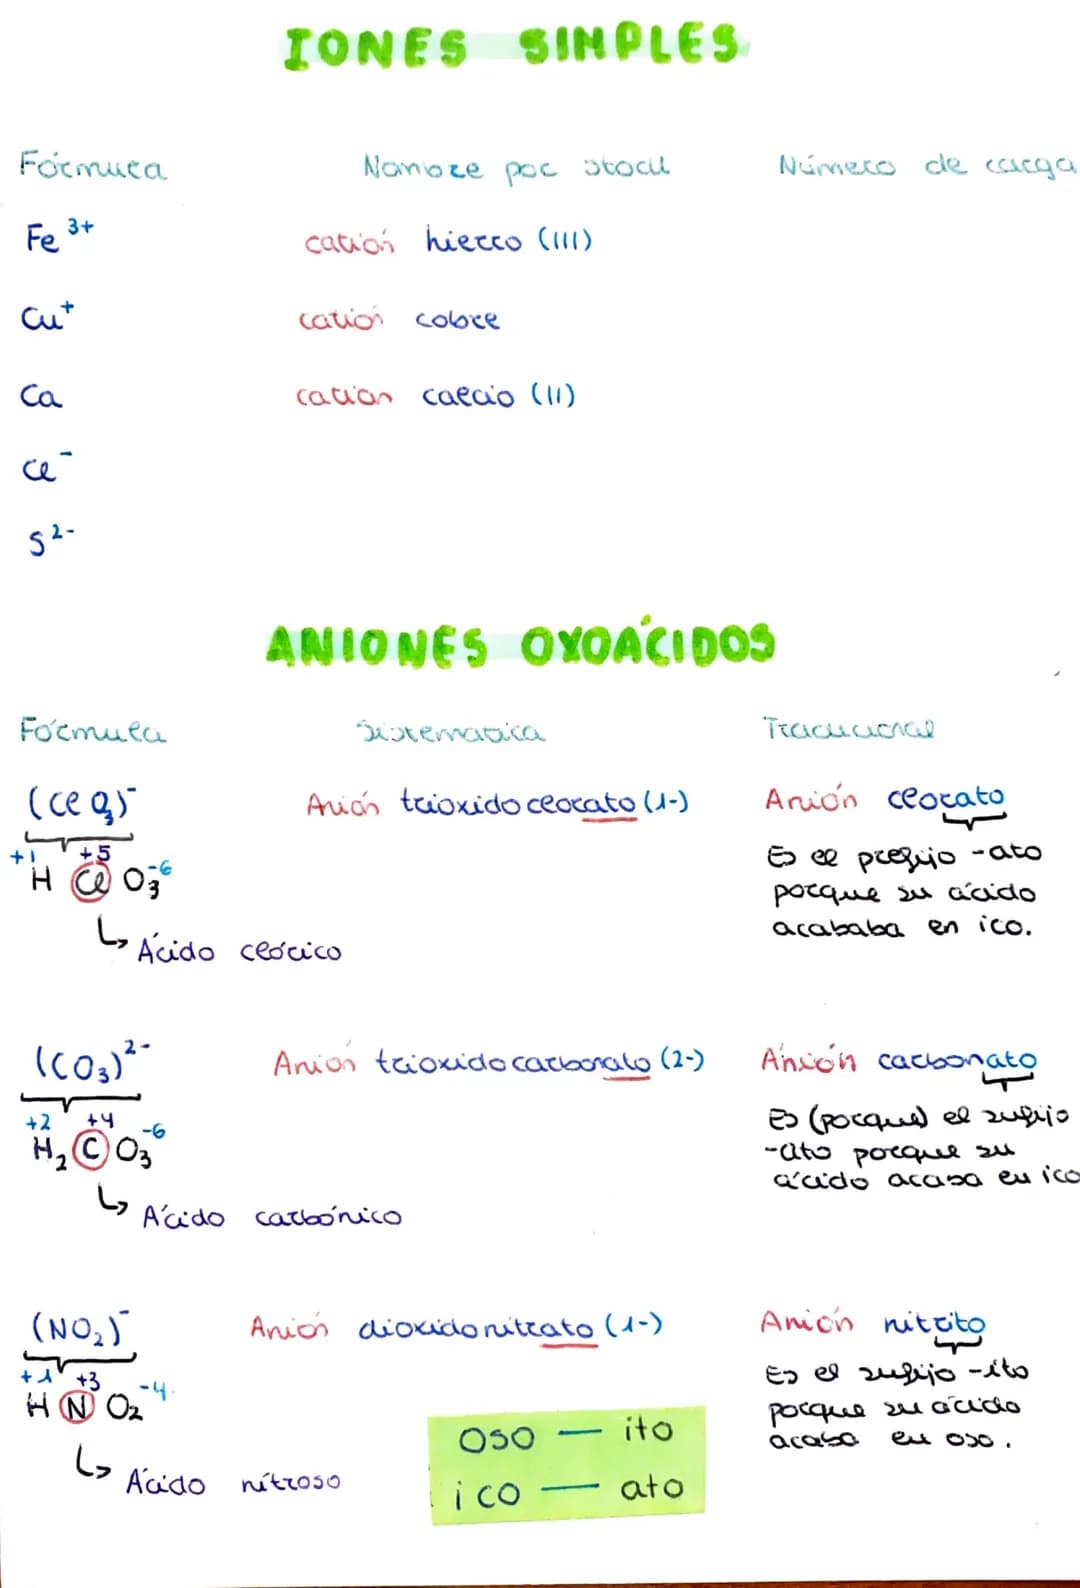 IONES SIMPLES
Fórmula Nombre por stock Número de carga
Fe 3+ catión hierro (III)
Cu+ catión cobre
Ca catión calcio (II)
Cl-
S2-
ANIONES OXOÁCIDOS
Fórmula Sistematica Tradicional
(ClO3)- Anión trioxidoclorato (1-) Anión clorato
+1 +5 -6
H Cl O3
Es el prefijo -ato
porque su ácido
acababa en ico.
↳ Ácido clórico
(CO3)2- Anión trioxidocarbonato (2-) Anión carbonato
+2 +4 -6
H2 C O3
Es (porque) el sufijo
-ato porque su
ácido acaba en ico
↳ Ácido carbónico
(NO2)- Anión dioxidonitrato (1-) Anión nitrito
+1 +3 -4
H N O2
Es el sufijo -ito
porque su ácido
acaba en oso.
↳ Ácido nítroso
oso — ito
ico — ato